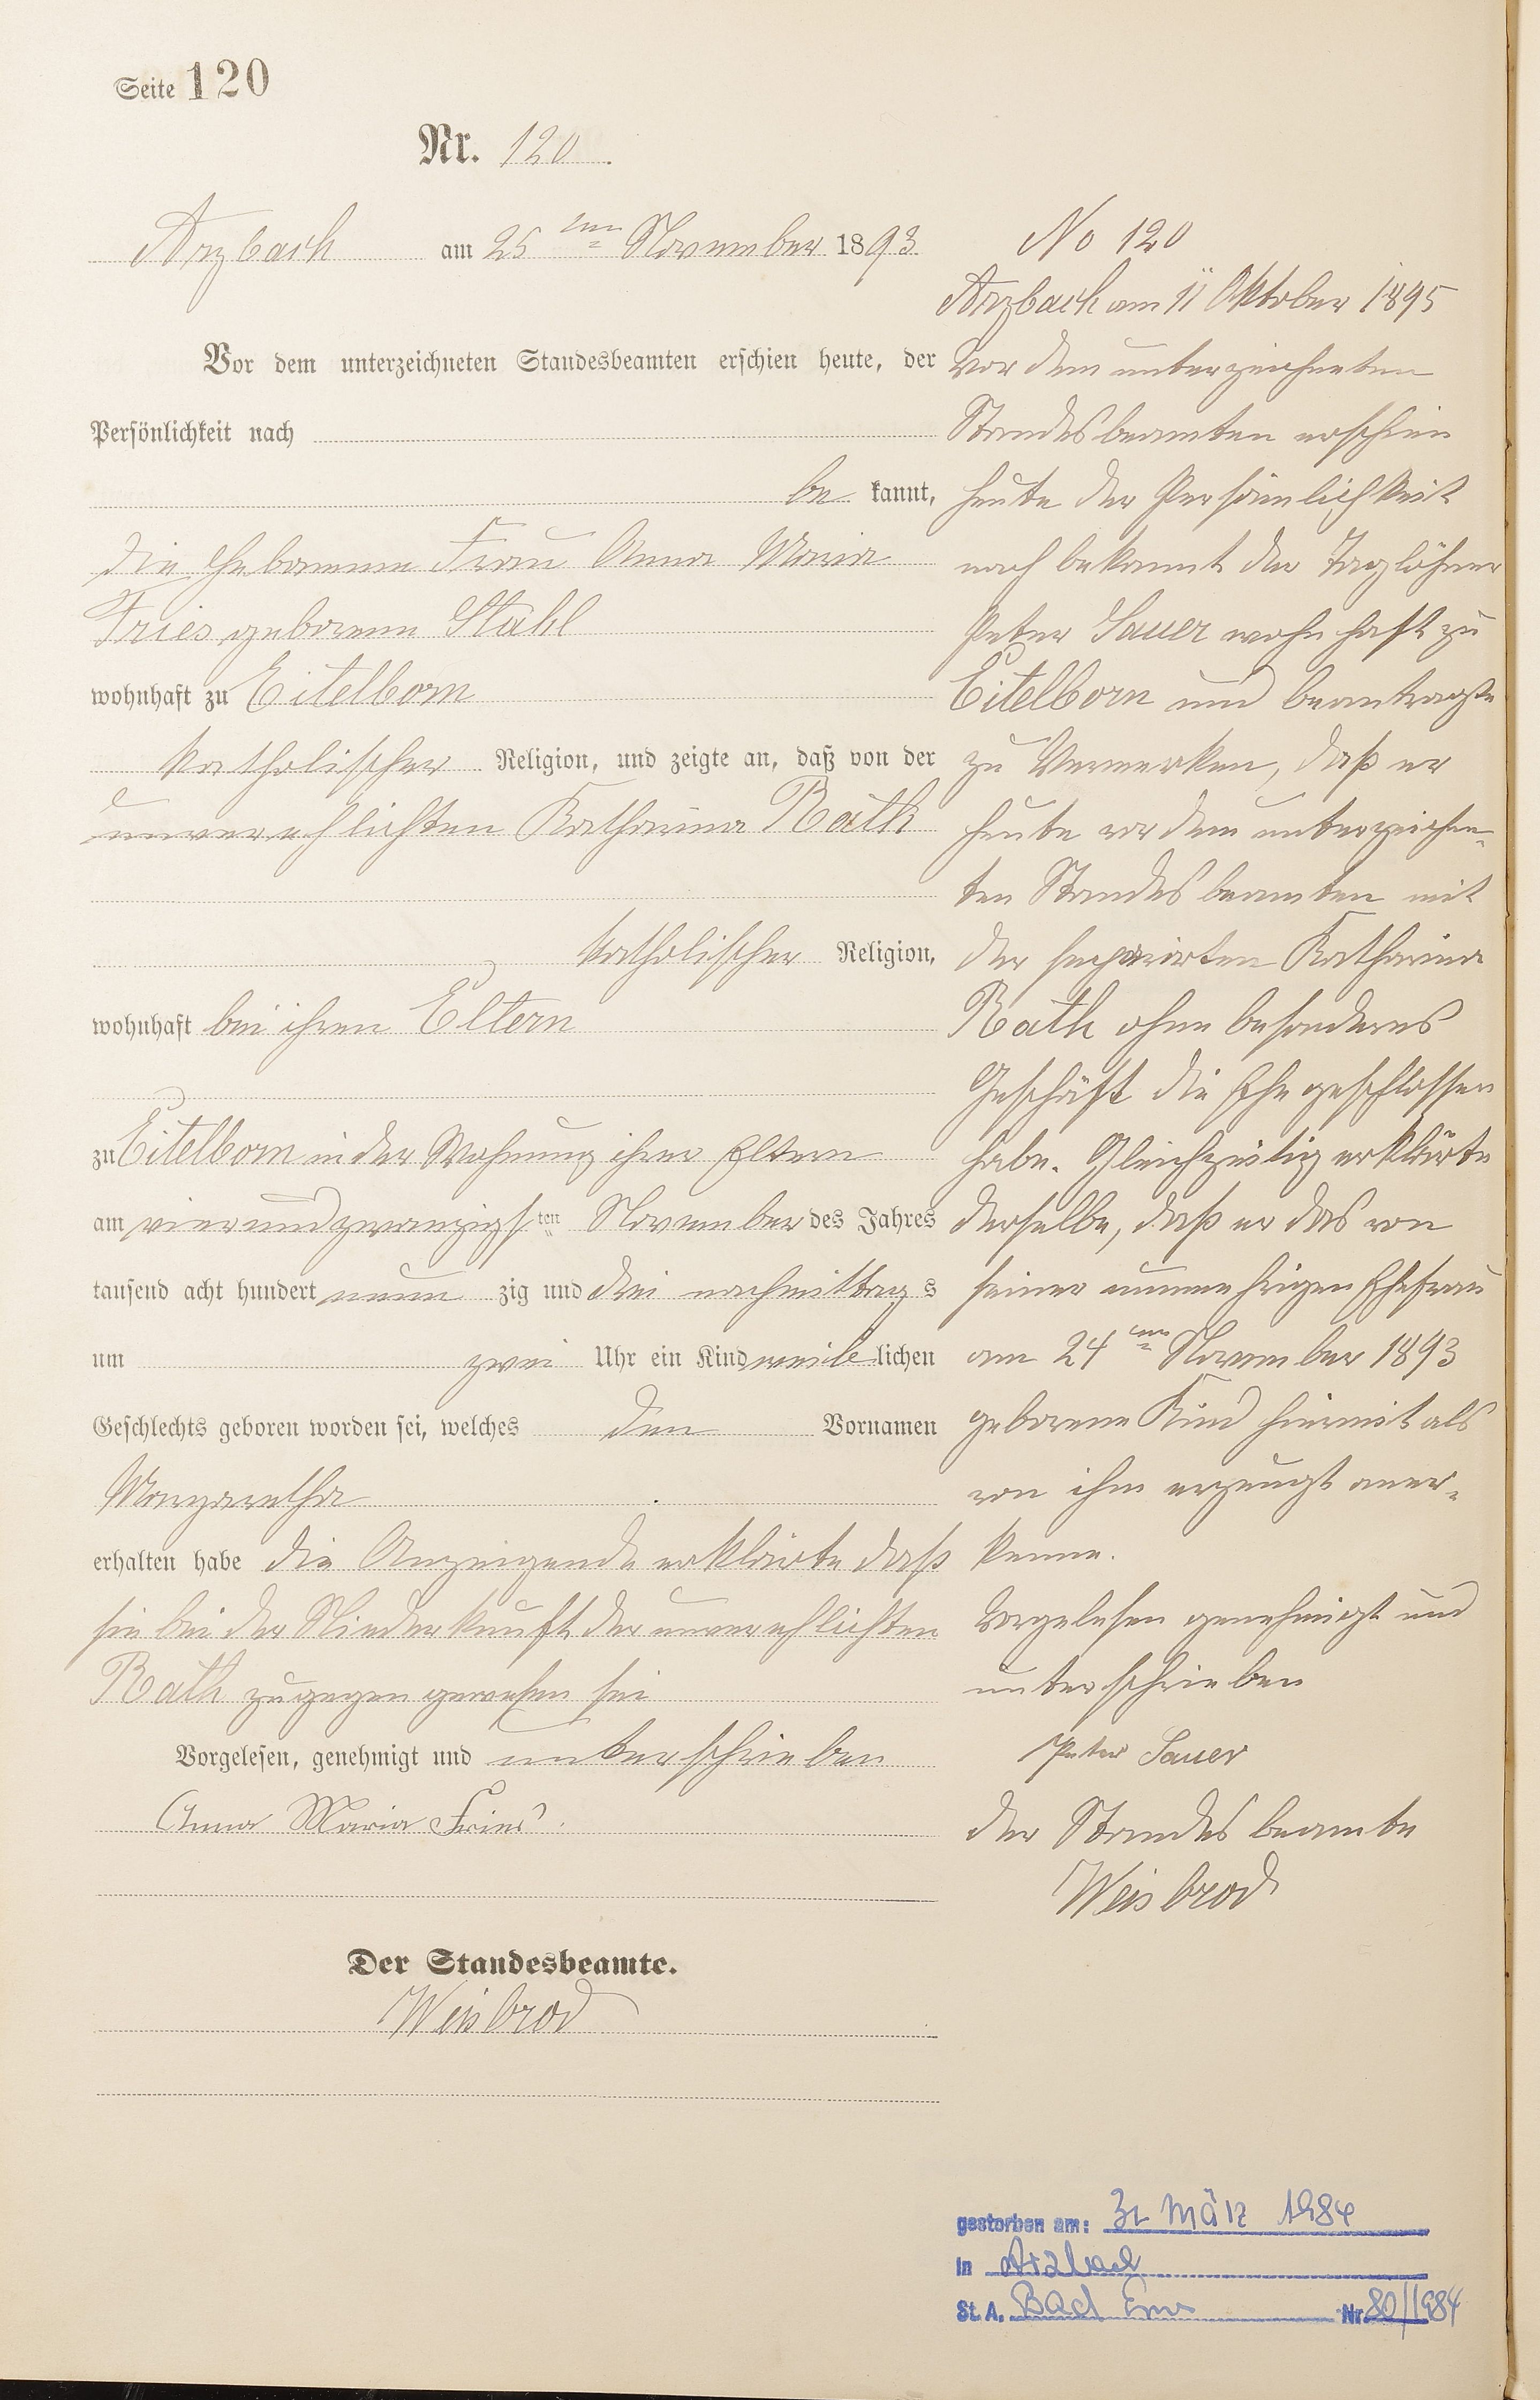 Seite 120
Nr. 120.
Arzbach am 25ten November 1893.
Vor dem unterzeichneten Standesbeamten erschien heute, der
Persönlichkeit nach
be kannt,
die Hebamme Frau Anna Maria
Fries geborene Stahl
wohnhaft zu Eitelborn
katholischer Religion, und zeigte an, daß von der
unverehlichten Katharina Räth
katholischer Religion,
wohnhaft bei ihren Eltern
zu Eitelborn in der Wohnung ihrer Eltern
am vierundzwanzigsten November des Jahres
tausend acht hundert neun zig und drei nachmittags
um zwei Uhr ein Kind weiblichen
Geschlechts geboren worden sei, welches den Vornamen
Margaretha
erhalten habe die Anzeigende erklärte daß
sie bei der Niederkunft der unverehlichten
Räth zugegen gewesen sei
Vorgelesen, genehmigt und unterschrieben
Anna Maria Fries.
Der Standesbeamte.
Weisbrod
No 120
Arzbach am 11 Oktober 1895
Vor dem unterzeichneten
Standesbeamten erschien
heute der Persönlichkeit
nach bekannt der Taglöhner
Peter Sauer wohnhaft zu
Eitelborn und beantragte
zu Vermerken, daß er
heute vor dem unterzeichne-
ten Standesbeamten mit
der Katharina
Räth ohne besonderes
Geschäft die Ehe geschlossen
habe. Gleichzeitig erklärte
derselbe, daß er das von
seiner nunmehrigen Ehefrau
am 24ten November 1893
geborene Kind hiermit als
von ihm erzeugt aner-
kenne.
Vorgelesen genehmigt und
unterschrieben
Peter Sauer
der Standesbeamte
Weisbrod
gestorben am: März 1984
in Arzbach
St. A. Bad Ems Nr. 80/1984